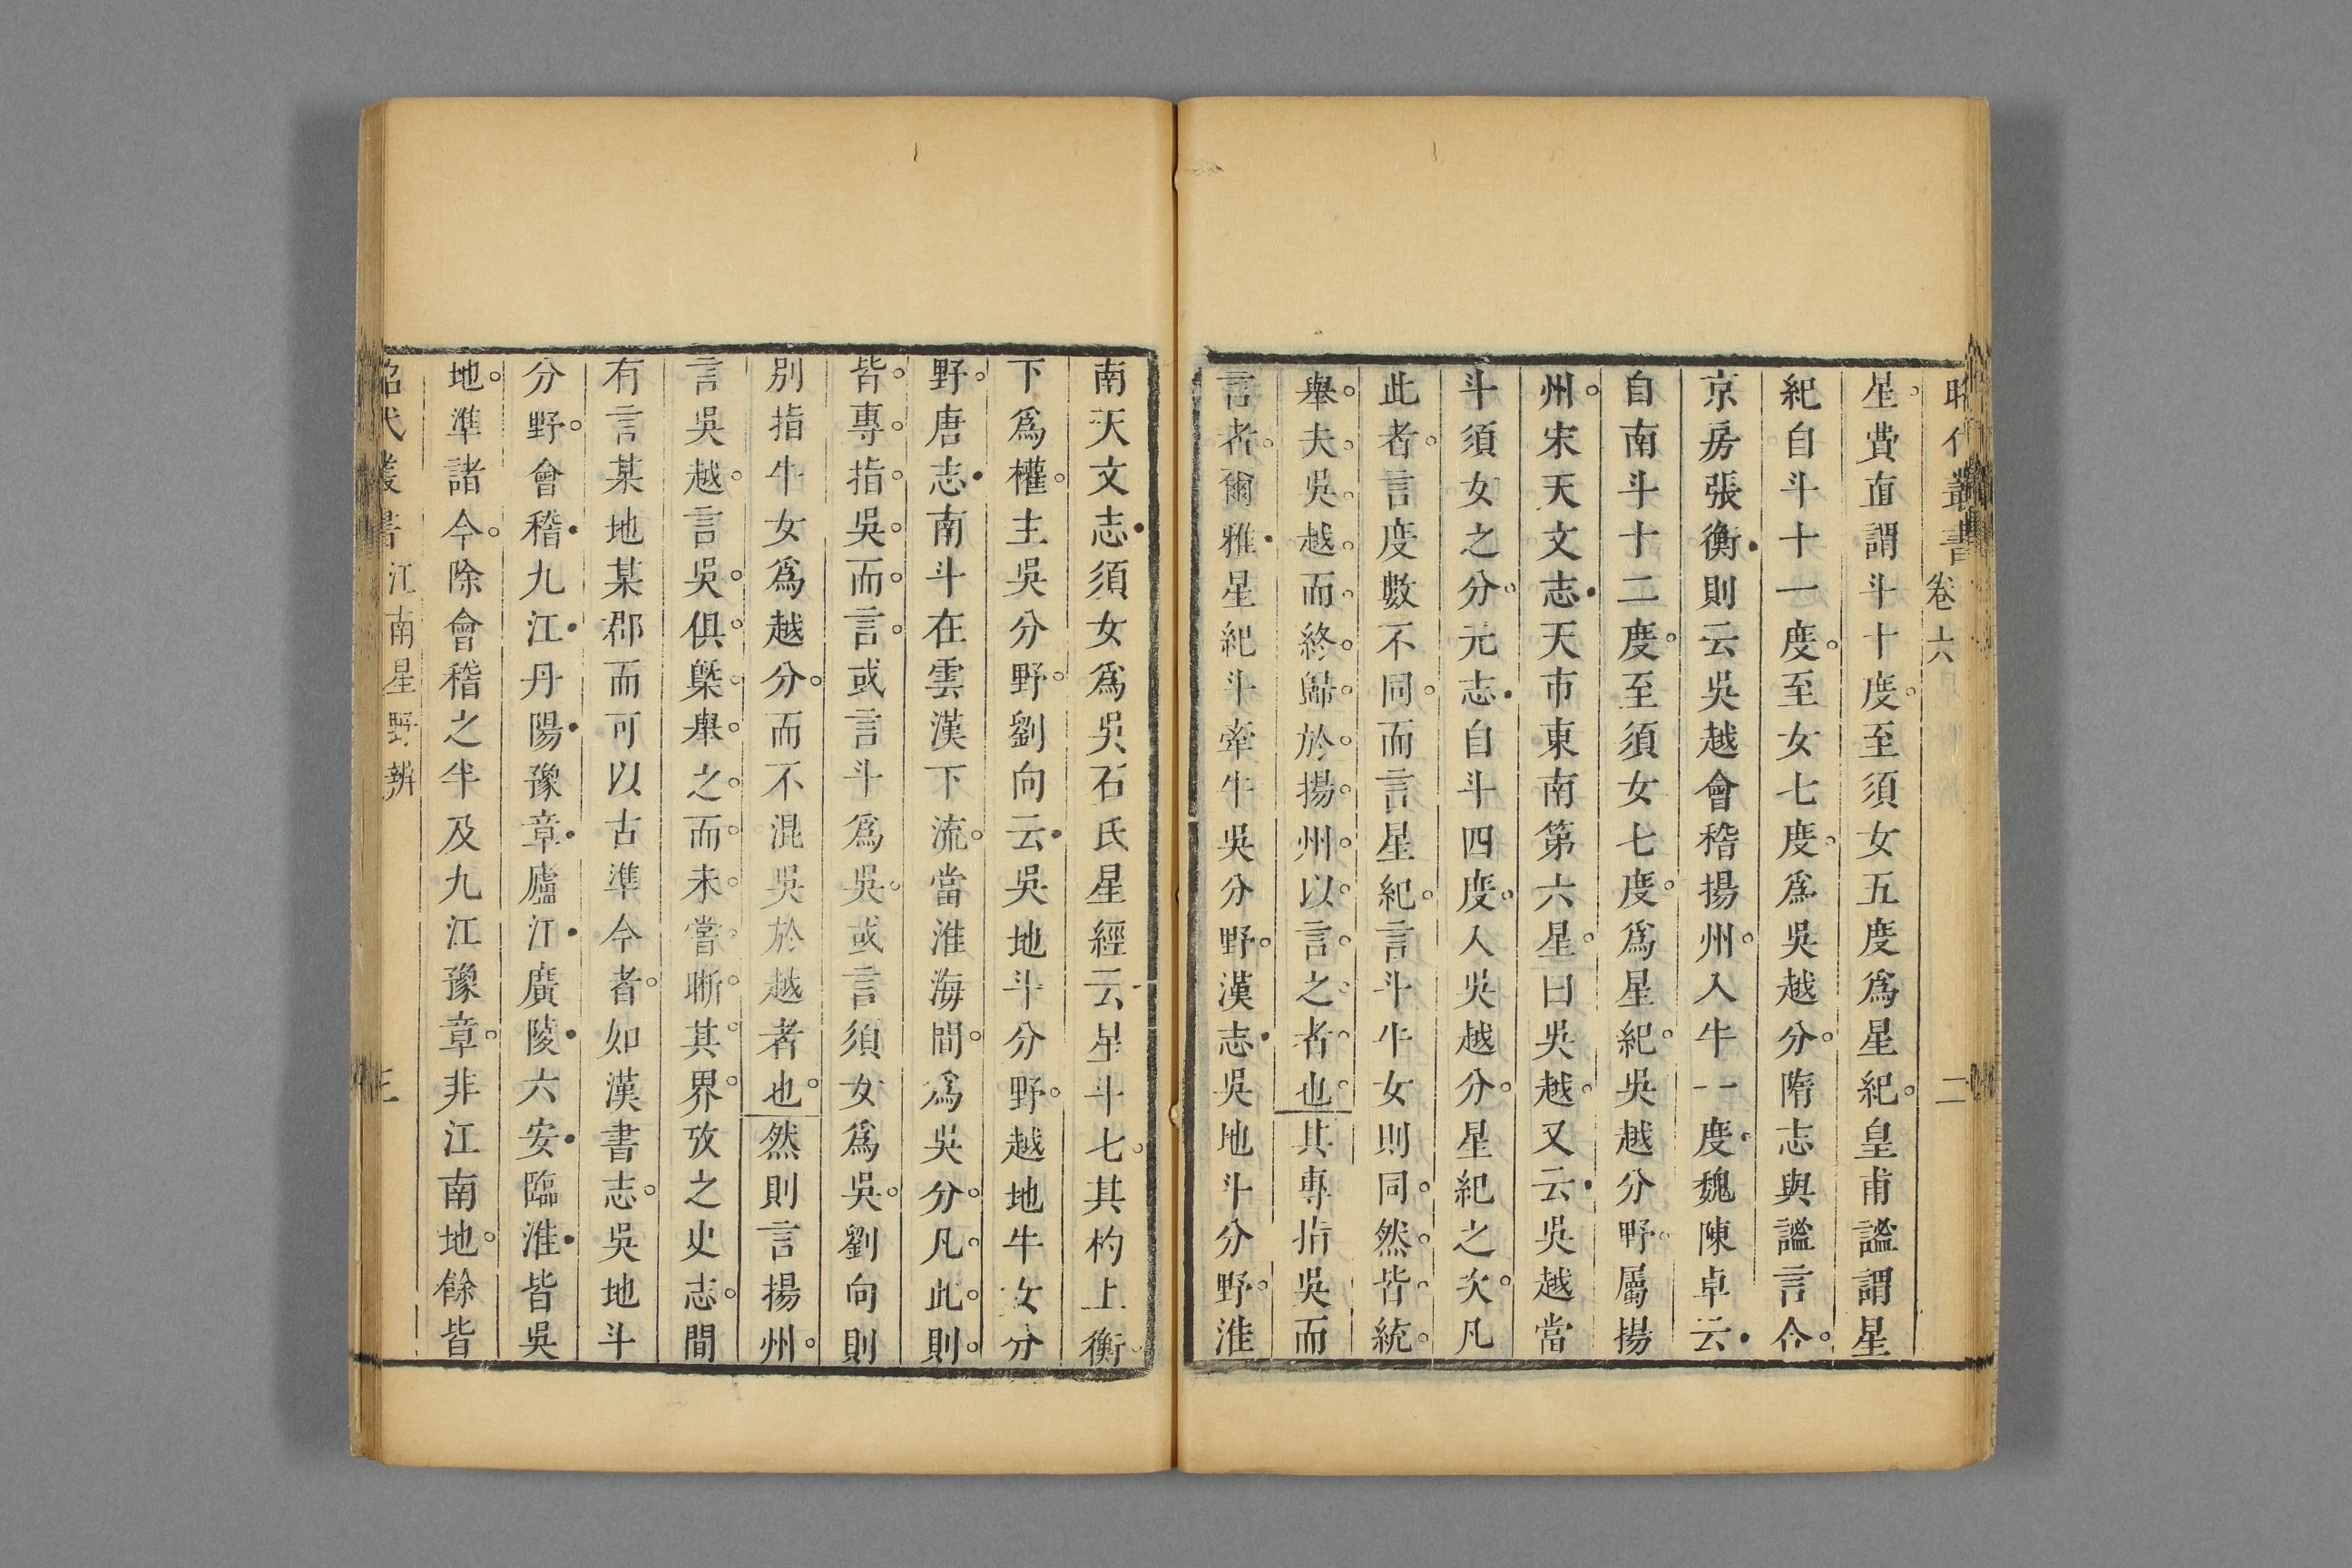 昭代叢書 卷六 二
星費直謂斗十度至須女五度爲星紀皇甫謐謂星
紀自斗十一度至女七度爲吳越分隋志與謐言合
京房張衡則云吳越會稽揚州入牛一度魏陳卓云
自南斗十二度至須女七度爲星紀吳越分野屬揚
州宋天文志天市東南第六星曰吳越又云吳越當
斗須女之分元志自斗四度入吳越分星紀之次凡
此者言度數不同而言星紀言斗牛女則同然皆統
舉夫吳越而終歸於揚州以言之者也其專指吳而
言者爾雅星紀斗牽牛吳分野漢志吳地斗分野淮
南天文志須女爲吳石氏星經云星斗七其杓上衡
下爲權主吳分野劉向云吳地斗分野越地牛女分
野唐志南斗在雲漢下流當淮海間爲吳分凡此則
皆專指吳而言或言斗爲吳或言須女爲吳劉向則
別指牛女爲越分而不混吳於越者也然則言揚州
言吳越言吳俱槩舉之而未嘗晰其界攷之史志間
有言某地某郡而可以古準今者如漢書志吳地斗
分野會稽九江丹陽豫章廬江廣陵六安臨淮皆吳
地準諸今除會稽之半及九江豫章非江南地餘皆
昭代叢書 江南星野辨 三